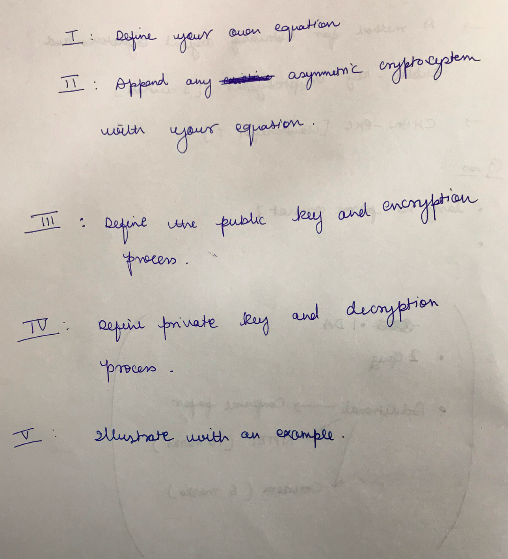 I : Define your own equation
II : Append any asymmetric cryptosystem
with your equation.
III : Define the public key and encryption
process.
IV : Define private key and decryption
process.
V : Illustrate with an example.